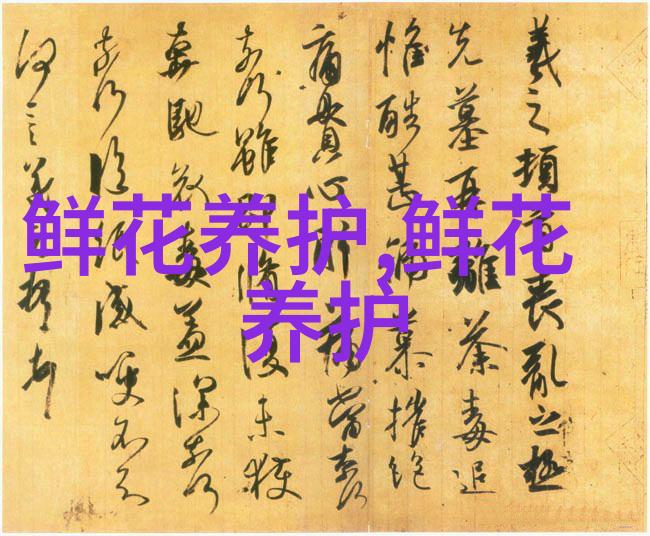 鲜花养护,鲜花
养护
羲之頓首喪亂之極
先墓再離荼毒追
惟酷甚號慕摧絕
痛貫心肝痛當奈何
奈何雖即脩復未獲
奔馳哀毒益深奈何
奈何臨紙感哽不知
何言羲之頓首頓首